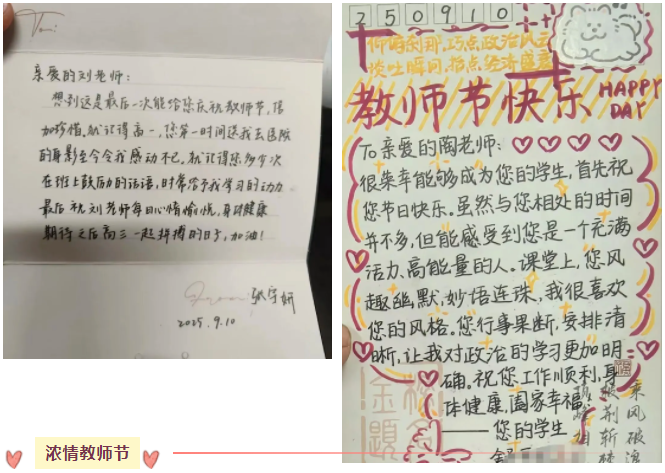 To:
亲爱的刘老师：
想到这是最后一次能给您庆祝教师节，倍
加珍惜，就记得高一，您第一时间送我去医院
的身影至今令我感动不已，就记得您多少次
在班上鼓励的话语，时常给予我学习的动力
最后祝刘老师每日心情愉悦，身体健康
期待之后高三一起拼搏的日子，加油！
From: 张宇妍
2025.9.10
250910
仰首刹那，巧点政治风云
谈吐瞬间，指点经济
教师节快乐 HAPPY
DAY
To 亲爱的陶老师：
很荣幸能够成为您的学生，首先祝
您节日快乐。虽然与您相处的时间
并不多，但能感受到您是一个充满
活力、高能量的人。课堂上，您风
趣幽默，妙语连珠，我很喜欢
您的风格。您行事果断，安排清
晰，让我对政治的学习更加明
确。祝您工作顺利，身
体健康，阖家幸福。
——您的学生
乘风破浪
披荆斩棘
金榜题名
浓情教师节